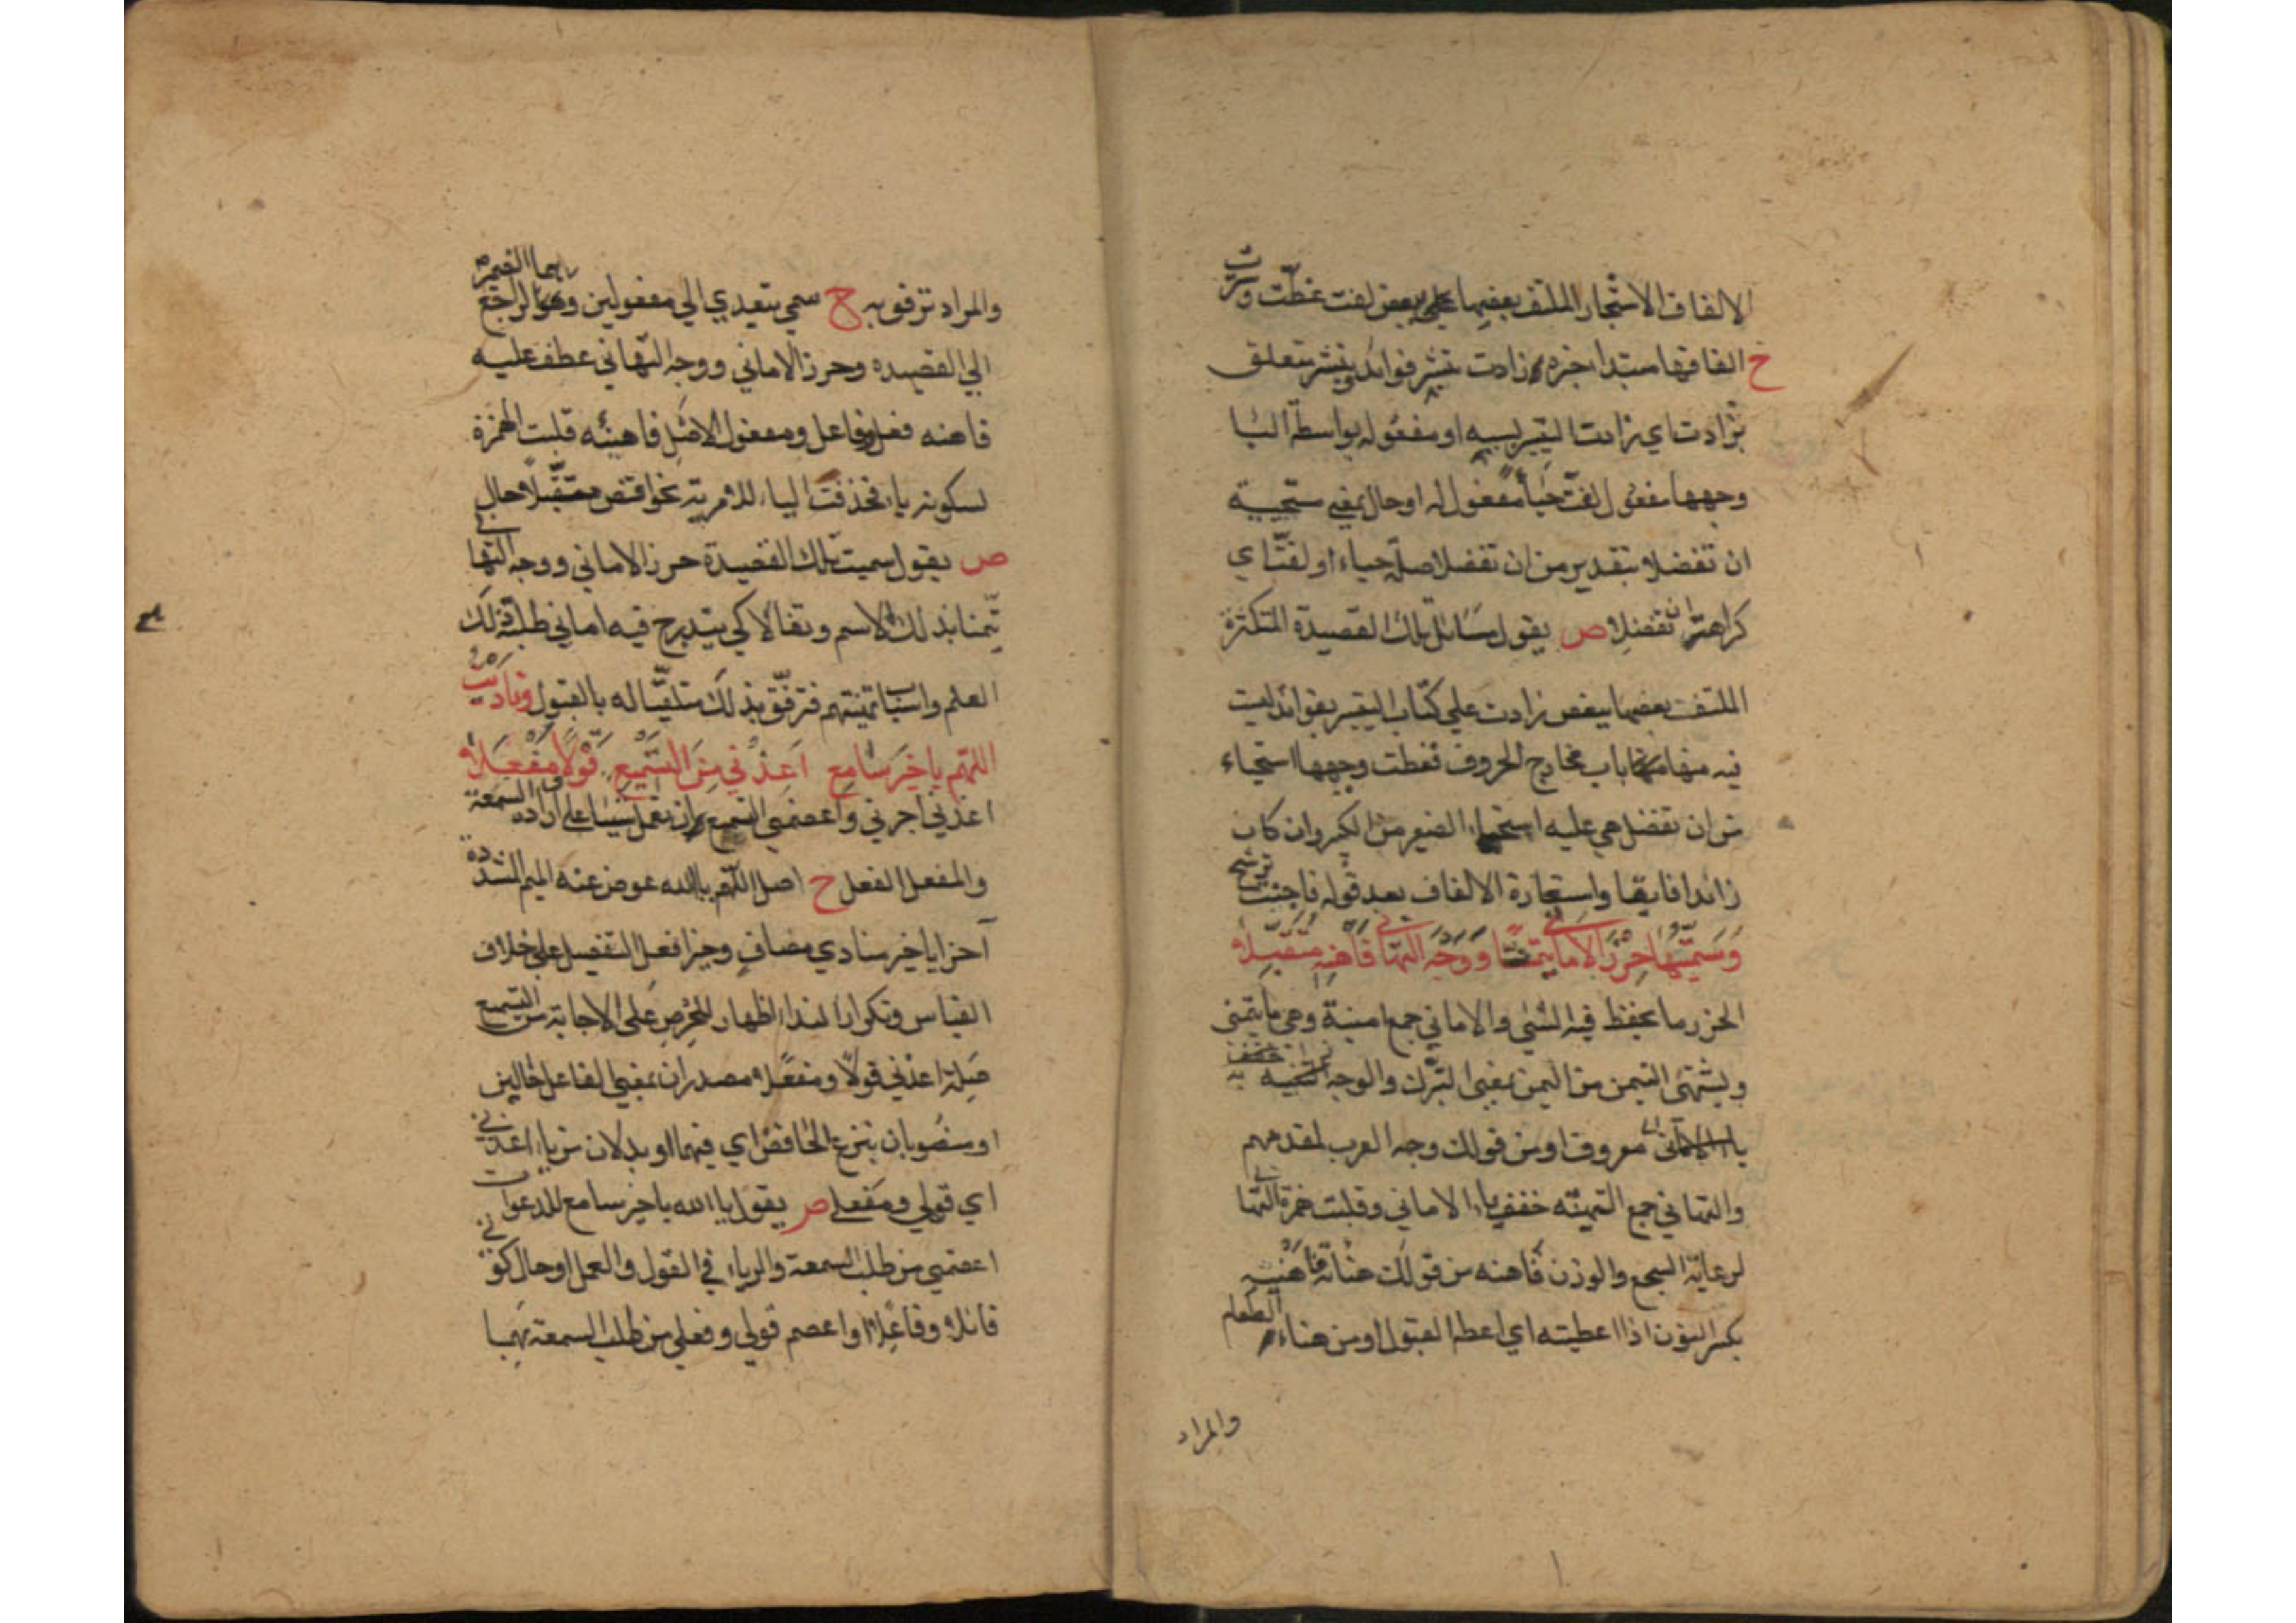 الالفاف الاشجار الملتف بعضها علي بعض لفت غطت وسترت
ح الفافها مبتدا خبره زادت بنشر فوائد بنشر متعلق
بزادت اي زادت التيسير بسببه او مفعوله بواسطة البا
وجهها مفعول لفت حياء مفعول له او حال بمعني مستحيية
ان تفضلا بتقدير من ان تفضلا صلة حياء او لفت اي
كراهة ان تفضلا ص يقول مسائل تلك القصيدة المتكثرة
الملتف بعضها ببعض زادت علي كتاب التيسير بفوائد ليست
فيه منها باب مخارج الحروف فغطت وجهها استحياء
من ان تفضل هي عليه استحياء الصغير من الكبير وان كان
زائدا فايقا واستعارة الالفاف بعد قوله فاجنت ترشيح
وَسَمَّيْتُهَا حِرْزَ الأماني تيمنا وَوَجْهَ التهاني فَاهْنِهِ مُتَقَبِّلا
الحرز ما يحفظ فيه الشي والاماني جمع امنية وهي ما يتمني
ويشتهي التيمن من اليمن بمعني التبرك والوجه
معروف او من قولك وجه العرب لمقدمهم
والتهاني جمع التهنئه خفف ياء الاماني وقلبت همزة التهاني
لرعاية السجع والوزن فاهنه من قولك هنأته فاهنيه
بكسر النون اذا اعطيته اي اعطه القبول او من هناء الطعام
والمراد
والمراد ترفق به ح سمي يتعدي الي مفعولين وهما الضمير الراجع
الي القصيده وحرز الاماني ووجه التهاني عطف عليه
فاهنه فعل وفاعل ومفعول الاصل فاهنئه قلبت الهمزة
لسكونه ياء فحذفت الياء للامرية نحو اقض متقبلا حال
ص يقول سميت تلك القصيدة حرز الاماني ووجه التهاني
تيمنا بذلك الاسم وتفالا كي يندرج فيه اماني طلبة ذلك
العلم واسباب تمنيتهم فترفق بذلك متلقيا له بالقبول وناديت
اللهم يا خَيْرَ سَامِعٍ أَعِذْنِي مِنَ التَّسْمِيعِ قَوْلاً وَمَفْعَلا
اعذني اجرني واعصمني التسميع ان تعمل شيئا علي ارادة السمعة
والمفعل الفعل ح اصل اللهم يا الله عوض عنه الميم المشددة
آخرا يا خير منادي مضاف وخير افعل التفضيل علي خلاف
القياس وتكرار النداء لاظهار الحرص علي الاجابة من التسميع
صلة اعذني قولا ومفعلا مصدران بمعني الفاعل حالين
او منصوبان بنزع الخافض اي فيهما او بدلان من ياء اعذني
اي قولي ومفعلي ص يقول يا الله يا خير سامع للدعوات
اعصمني من طلب السمعة والرياء في القول والعمل او حال كوني
قائلا وفاعلا او اعصم قولي وفعلي من طلب السمعة بهما